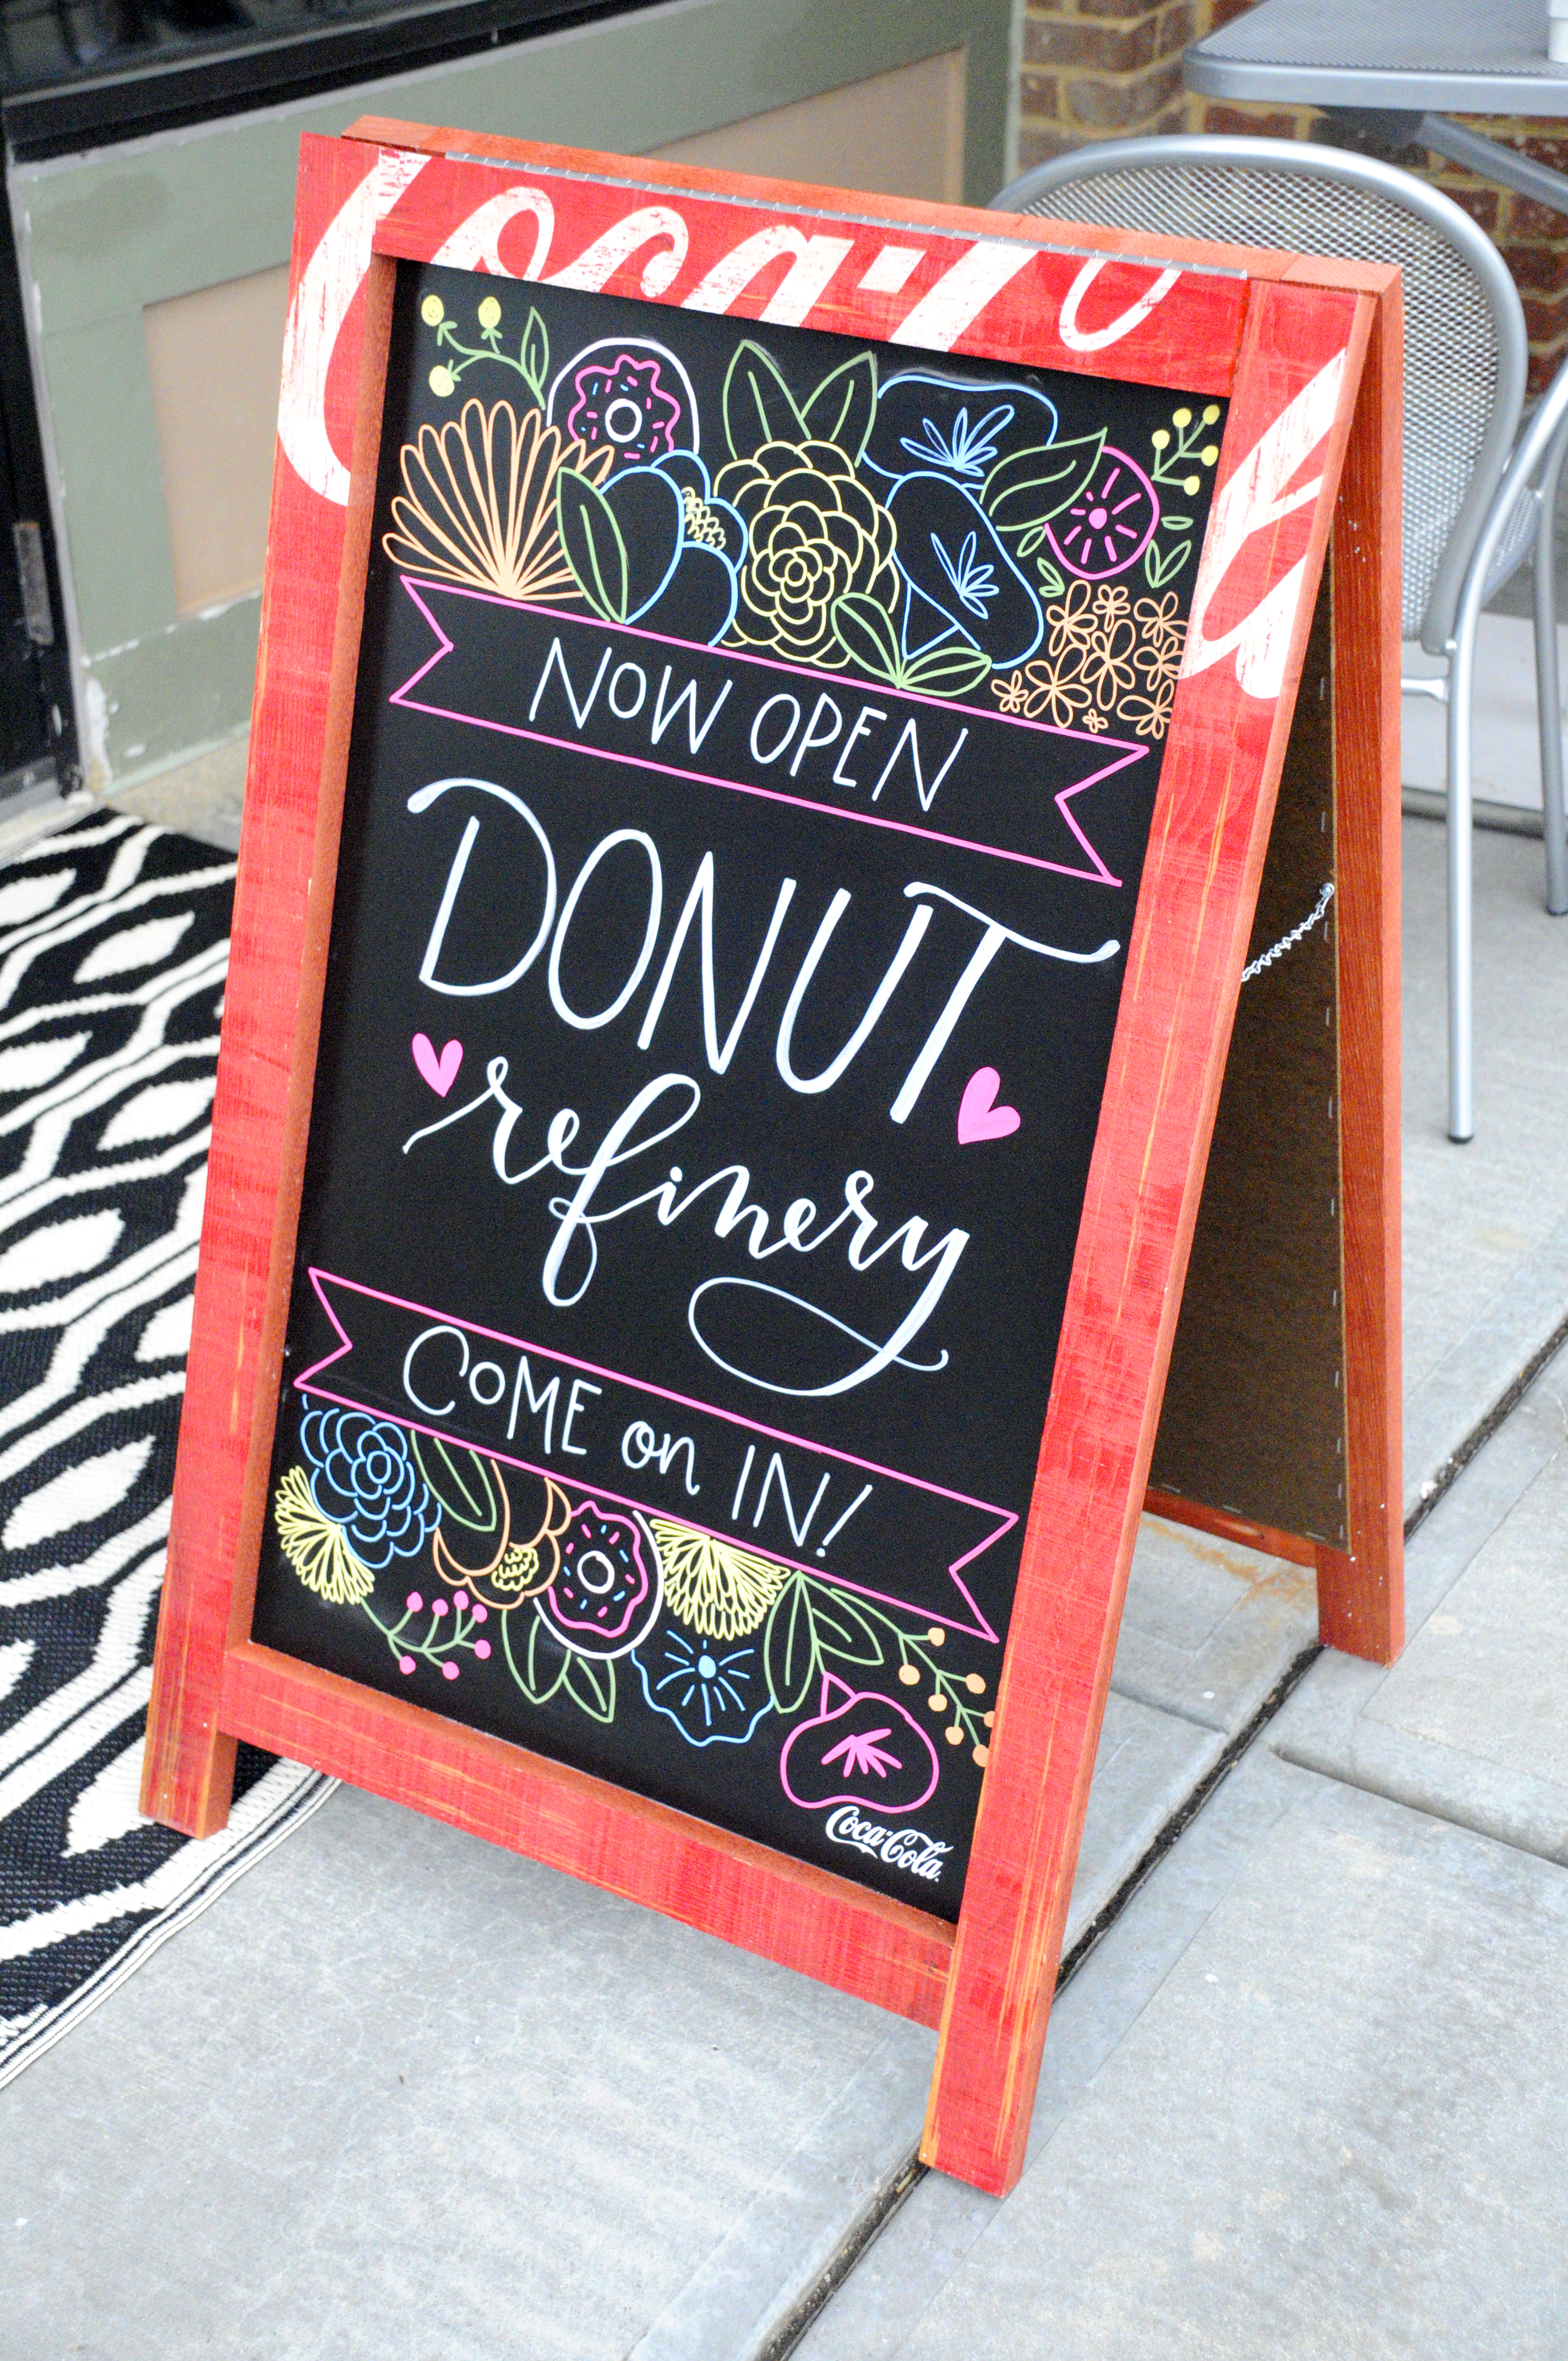 Coca-Cola
NoW OPEN
DONUT
refinery
CoME on IN!
Coca-Cola